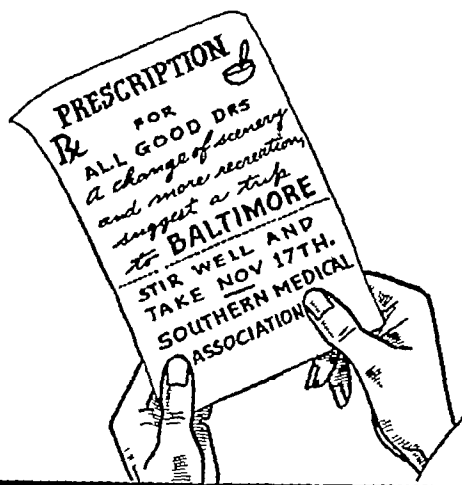 PRESCRIPTION
Rx FOR
ALL GOOD DRS
A change of scenery
and more recreation,
suggest a trip
to BALTIMORE
STIR WELL AND
TAKE NOV 17TH.
SOUTHERN MEDICAL
ASSOCIATION